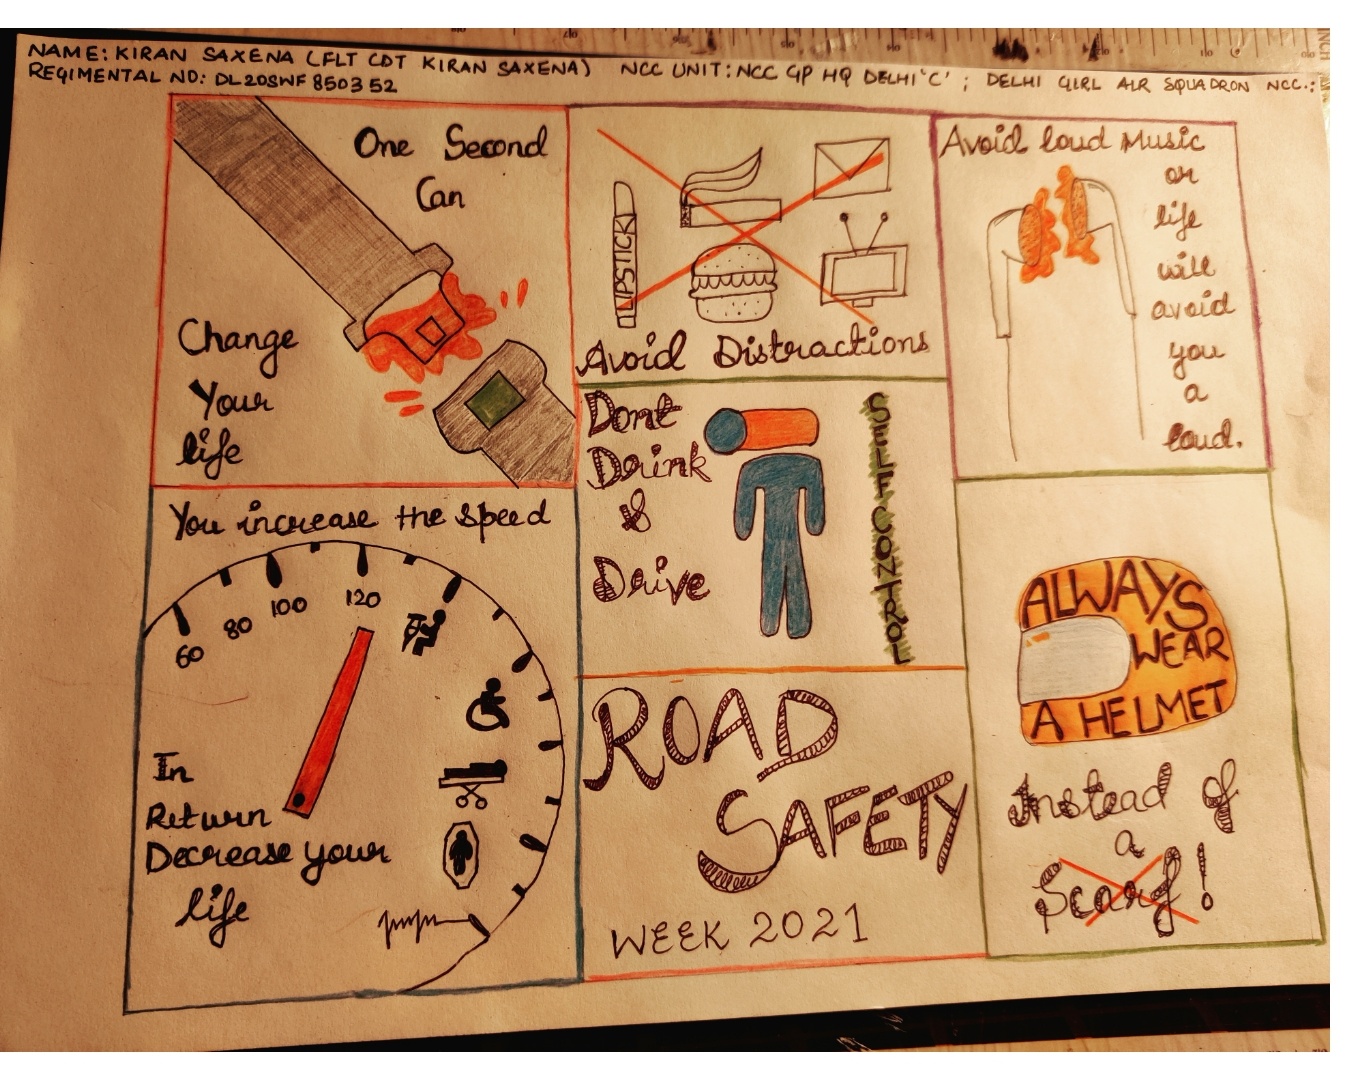 NAME: KIRAN SAXENA (FLT CDT KIRAN SAXENA) NCC UNIT: NCC GP HQ DELHI 'C' ; DELHI GIRL AIR SQUADRON NCC.;
REGIMENTAL NO: DL20SWF850352
One Second
Can
Change
Your
life
LIPSTICK
Avoid Distractions
Avoid loud Music
or
life
will
avoid
you
a
loud.
Dont
Drink
&
Drive
SELF CONTROL
You increase the speed
60
80
100
120
In
Return
Decrease your
life
ROAD
SAFETY
WEEK 2021
ALWAYS
WEAR
A HELMET
Instead of
a
Scarf!